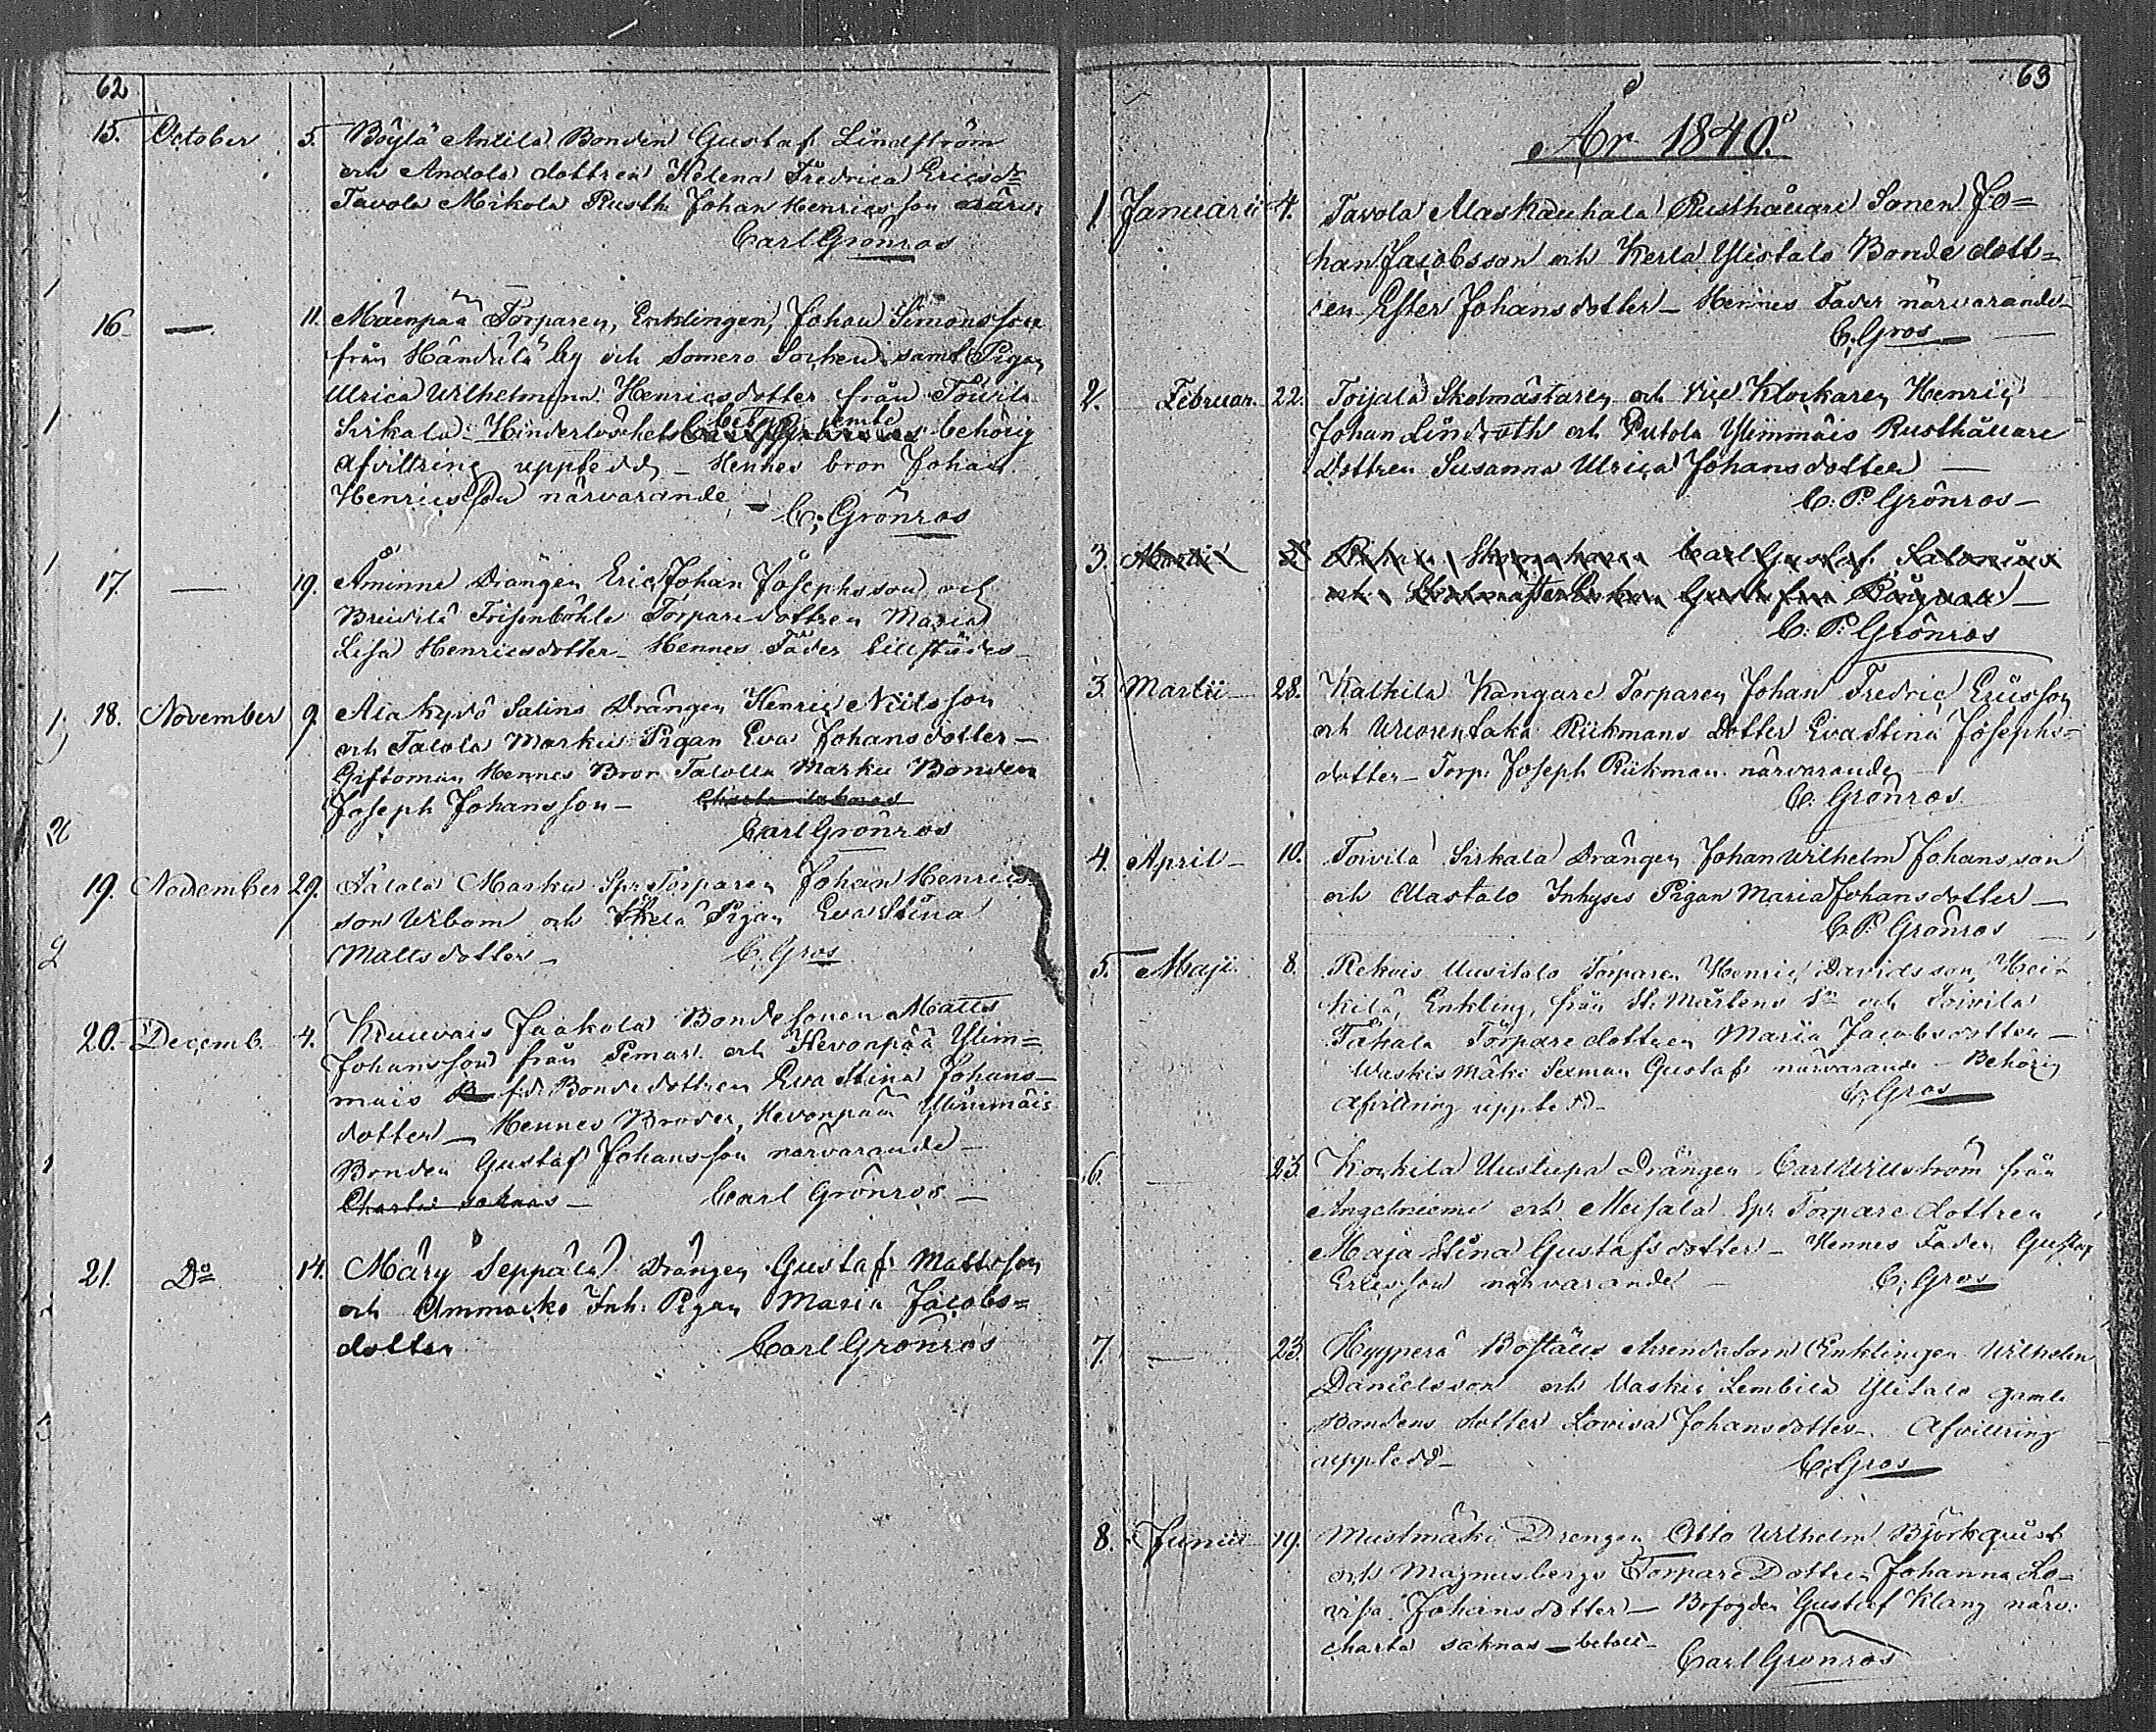 62
15. October 5. Böylä Anttila Bonden Gustaf Lindström
och Andola dottren Helena Fredrica Ericsdr
Tavola Mikola Rusth. Johan Henricsson närv.
Carl Grönros
16. — 11. Mäenpää Torparen, Enklingen, Johan Simonsson
från Händälä by och Somero Socken samt Pigan
Ulrica Wilhelmina Henricsdotter från Toivila
Sirkala. Hinderlöshets bet. jemte behörig
Afvittring upptedd — Hennes bror Johan
Henricsson närvarande — C. Grönros
17. — 19. Åminne Drängen Eric Johan Josephsson och
Torparedottren Maria
Lisa Henricsdotter — Hennes Fader tillstädes —
18. November 9. Alakydö Salins Drängen Henric Nilsson
och Talola Marku Pigan Eva Johansdotter —
Giftoman Hennes Bror Talolla Marku Bonden
Joseph Johansson — Charta saknas
Carl Grönros
19. November 29. Talola Marku Spr Torparen Johan Henrics-
son Wibom och Pigan Eva Stina
Mattsdotter — C. Gros
20. Decemb. 4. Kruuvais Jaakola Bondesonen Matts
Johansson från Pemar och Hevonpää Ylim=
mäis f.d. Bondedottren Eva Stina Johans-
dotter — Hennes Broder, Hevonpää Ylimmäis
Bonden Gustaf Johansson närvarande —
Charta saknas — Carl Grönros —
21. Do 14. Märy Seppälä Drängen Gustaf Mattsson
och Ammacko Inh. Pigan Maria Jacobs=
dotter Carl Grönros
63
År 1840.
1. Januarii 4. Tavola Alaskauhala Rusthållare Sonen Jo=
han Jacobsson och Kerla Ylistalo Bonde dott=
ren Ester Johansdotter — Hennes Fader närvarande —
C. Gros
2. Februar. 22. Toijala Skolmästaren och Vice Klockaren Henric
Johan Lindroth och Putola Ylimmäis Rusthållare
Dottren Susanna Ulrica Johansdotter —
C. P. Grönros —
3. Martii Carl Gustaf
C. P. Grönros
3. Martii — 28. Kaikila Kangare Torparen Johan Fredric Ericsson
och Wuorentaka Riikmans Dotter Eva Stina Josephs=
dotter — Torp. Joseph Riikman närvarande —
C. Grönros
4. April — 10. Toivila Sirkala Drängen Johan Wilhelm Johansson
och Alastalo Inhyses Pigan Maria Johansdotter —
C. P. Grönros
5. Maji 8. Rekois Uusitalo Torparen Henric Davidsson, Hei-
kilä, Enkling, från St. Mårtens Sn och Toivila
Tähala Torparedottren Maria Jacobsdotter —
Waskis Mäki Sexman Gustaf närvarande — Behörig
Afvittring uppted — C. Gros
6. — 23. Koskila Uusitupa Drängen Carl Willström från
Angelniemi och Meisala Spr Torpare dottren
Maja Stina Gustafsdotter — Hennes Fader Gustaf
Ericsson närvarande — C. Gros
7. — 23. Hyyperä Boställs Arrendatorn Enklingen Wilhelm
Danielsson och Vaskis Lembilä Ylitalo gamle
Bondens dotter Lovisa Johansdotter. Afvittring
uppted — C. Gros
8. Junii 19. Mustmäki Drengen Otto Wilhelm Björkqvist
och Magnusbergs Torpare Dottren Johanna Lo-
visa Johansdotter — Bofogden Gustaf Klang närv.
charta saknas — betalt — Carl Grönros